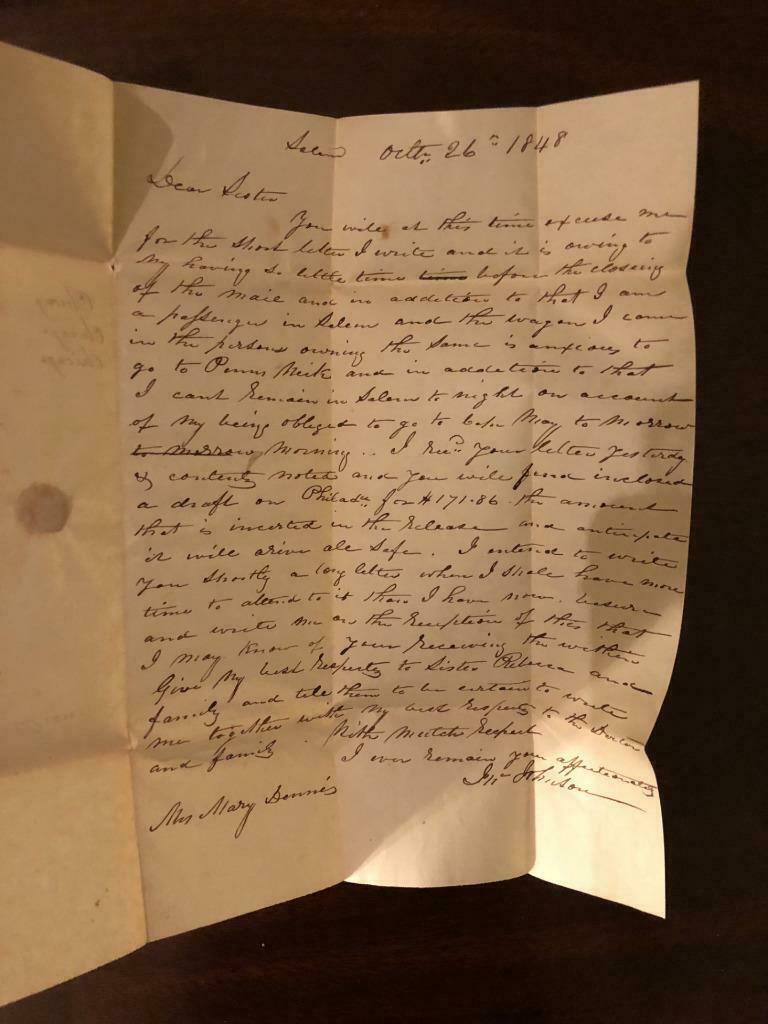 Salem Octr. 26th 1848
Dear Sister
You will at this time excuse me
for the short letter I write and it is owing to
my having so little time time before the closing
of the mail and in addition to that I am
a passenger in Salem and the wagon I came
in the person owning the same is anxious to
go to Penns Neck and in addition to that
I cant Remain in Salem to night on account
of my being obliged to go to Cape May to Morrow
to Morrow Morning .. I Recd. your letter yesterday
& contents noted and you will find inclosed
a draft on Philada. for $171.86 the amount
that is incerted in the Release and anticipate
it will arive all safe. I entend to write
you shortly a long letter when I shall have more
time to attend to it than I have now. besure
and write me on the Reception of this that
I may know of your receiving the within
Give my best Respects to Sister Rebecca and
family and tell them to be certain to write
me together with my best Respects to the Doctor
and family. With mutch Respect
I ever Remain your affectionately
Jno Johnson
Mrs Mary Dennis